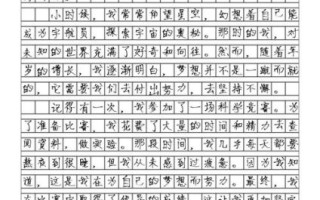 小时候，我常常仰望星空，幻想着自己能
成为宇航员，探索宇宙的奥秘。那时的我，对
未知的世界充满了好奇和向往。然而，随着年
岁的增长，我逐渐明白，梦想并不是一蹴而就
的，它需要我们去付出努力，去坚持不懈。
记得有一次，我参加了一场科学竞赛。为
了准备比赛，我花费了大量的时间和精力去查
阅资料，做实验。那段时间，我几乎每天都要
熬夜到很晚，但我从未感到过疲惫。因为我知
道，这是我在为自己的梦想而努力。最终，我